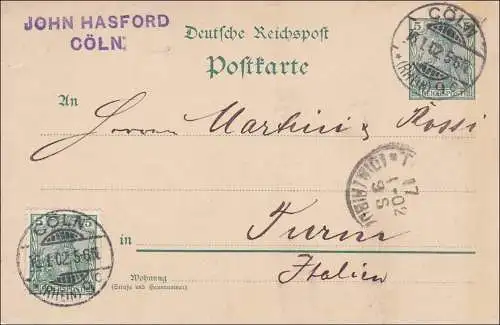 JOHN HASFORD
CÖLN
Deutsche Reichspost
Postkarte
5
CÖLN
16.1.02.5-6N.
*(RHEIN)9.c
An
Herren Martini & Rossi
17
1-02
9 S
in Turin
Italien
5
CÖLN
16.1.02.5-6N.
(RHEIN)9.c
Wohnung
(Straße und Hausnummer)